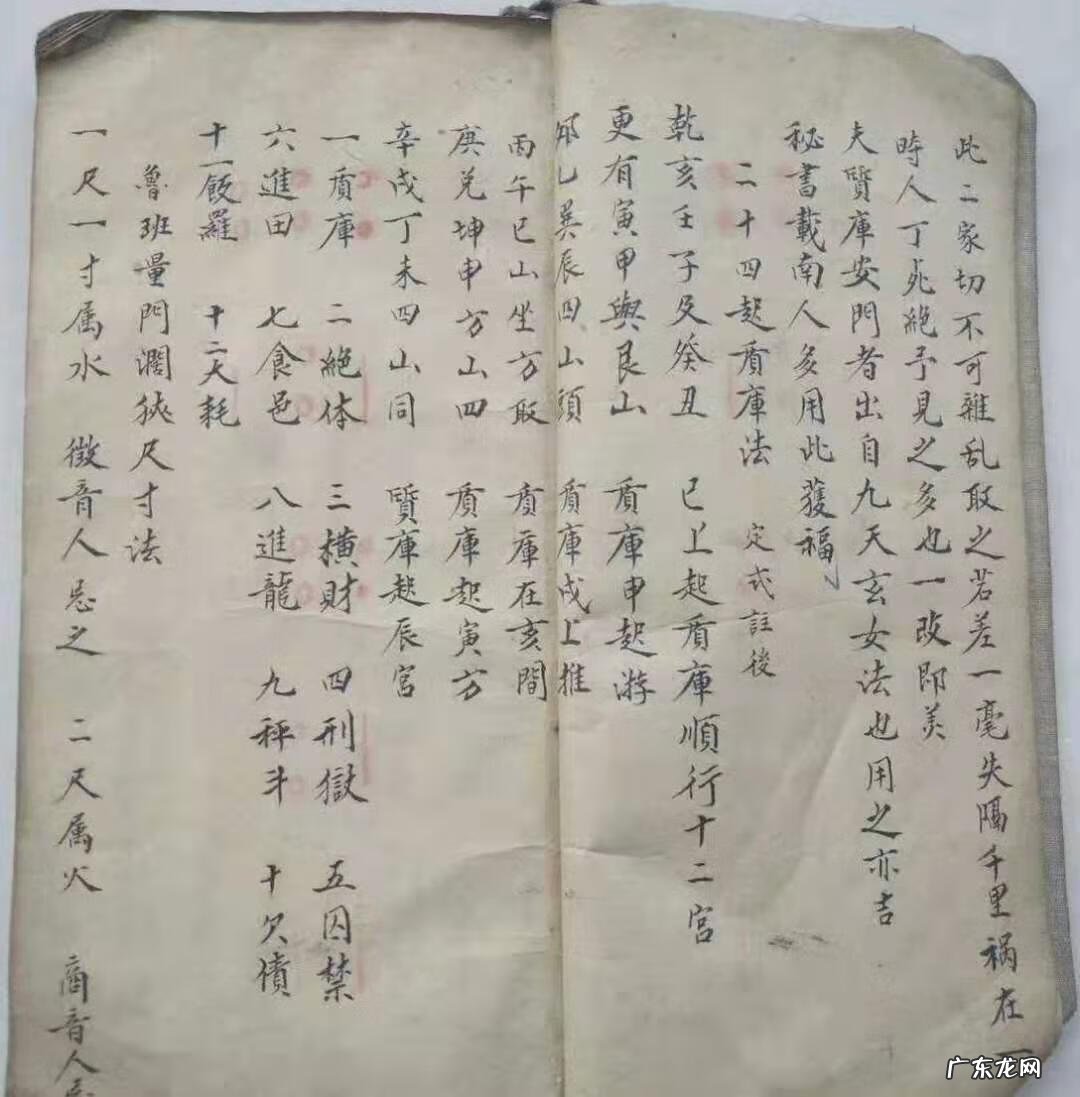 此二家切不可雜乱取之若差一毫失隔千里禍在
時人丁死絕予見之多也一改即美
夫質庫安門者出自九天玄女法也用之亦吉
秘書載南人多用此獲福
二十四起质庫法 定式註後
乾亥壬子及癸丑 已上起质庫順行十二宮
更有寅甲與艮山 质庫申起游
卯乙巽辰四山頭 质庫戌上推
丙午巳山坐方取 质庫在亥間
庚兌坤申方山四 质庫起寅方
辛戌丁未四山同 質庫起辰宮
一质庫 二絕体 三橫財 四刑獄 五囚禁
六進田 七食邑 八進龍 九秤斗 十欠債
十一飯羅 十二大耗
魯班量門濶狹尺寸法
一尺一寸属水 徵音人忌之 二尺属火 商音人忌
广东龙网